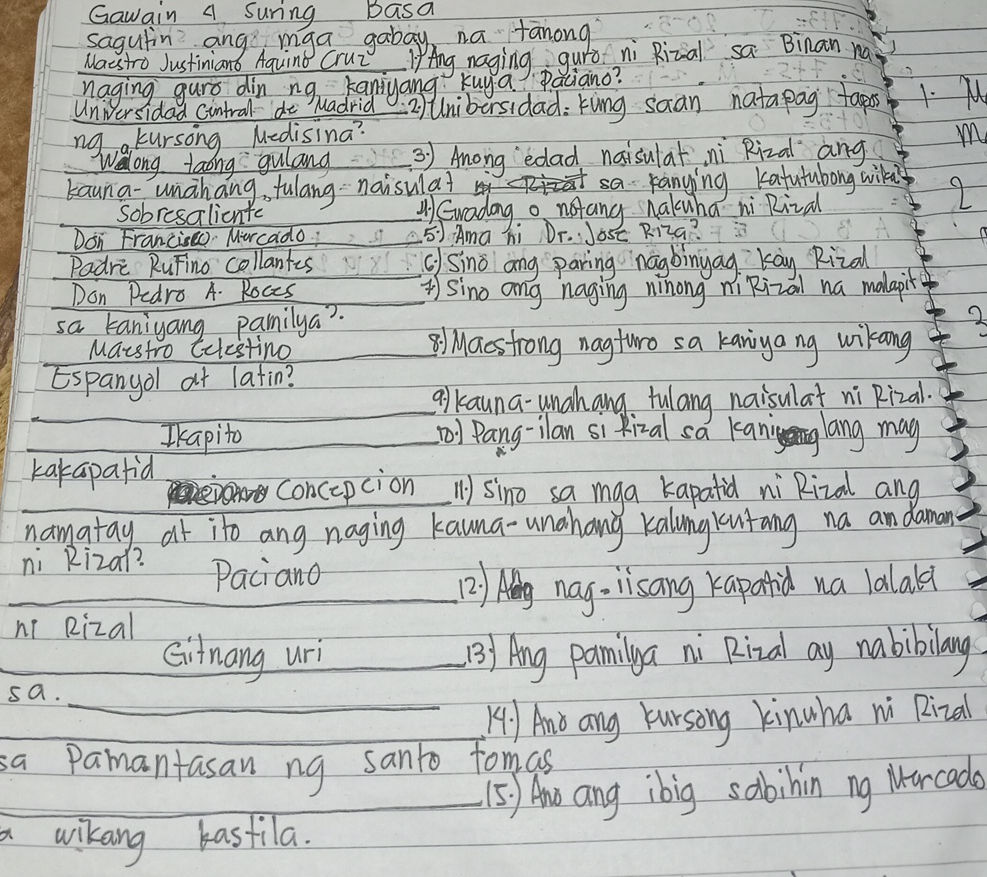 Gawain 4 Suring Basa
sagutin ang mga gabay na tanong
Maestro Justiniano Aquino Cruz 1.) Ang naging guro ni Rizal sa Binan na
naging guro din ng kaniyang kuya Paciano?
Universidad Contral de Madrid 2.) Unibersidad: kung saan natapag tapos
ng kursong Medisina?
Walong taong gulang 3.) Anong edad naisulat ni Rizal ang
kauna-unahang tulang naisulat sa kanying katutubong wika?
Sobresaliente 4.) Gwadong o notang nakuha ni Rizal
Don Francisco Mercado 5.) Ama ni Dr. Jose Rizal?
Padre Rufino Collantes 6.) Sino ang paring nagbinyag kay Rizal
Don Pedro A. Roces 7.) Sino ang naging ninong ni Rizal na malapit
sa kaniyang pamilya?
Maestro Celestino 8.) Maestrong nagturo sa kaniya ng wikang
Espanyol at latin?
9.) kauna-unahang tulang naisulat ni Rizal.
Ikapito 10.) Pang-ilan si Rizal sa kanilang mag
kakapatid
Concepcion 11.) Sino sa mga kapatid ni Rizal ang
namatay at ito ang naging kauna-unahang kalungkutang na amdaman
ni Rizal?
Paciano 12.) Ang nag-iisang kapatid na lalaki
ni Rizal
Gitnang uri 13.) Ang pamilya ni Rizal ay nabibilang
sa.
14.) Ano ang kursong kinuha ni Rizal
sa Pamantasan ng santo tomas
15.) Ano ang ibig sabihin ng Mercado
a wikang kastila.
1. M
m
2
3